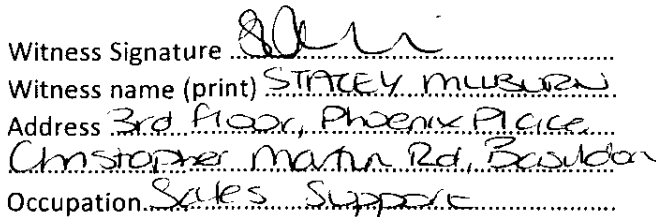 Witness Signature
Witness name (print) STACEY MILBURN
Address 3rd Floor, Phoenix Place,
Christopher Martin Rd, Basildon
Occupation Sales Support